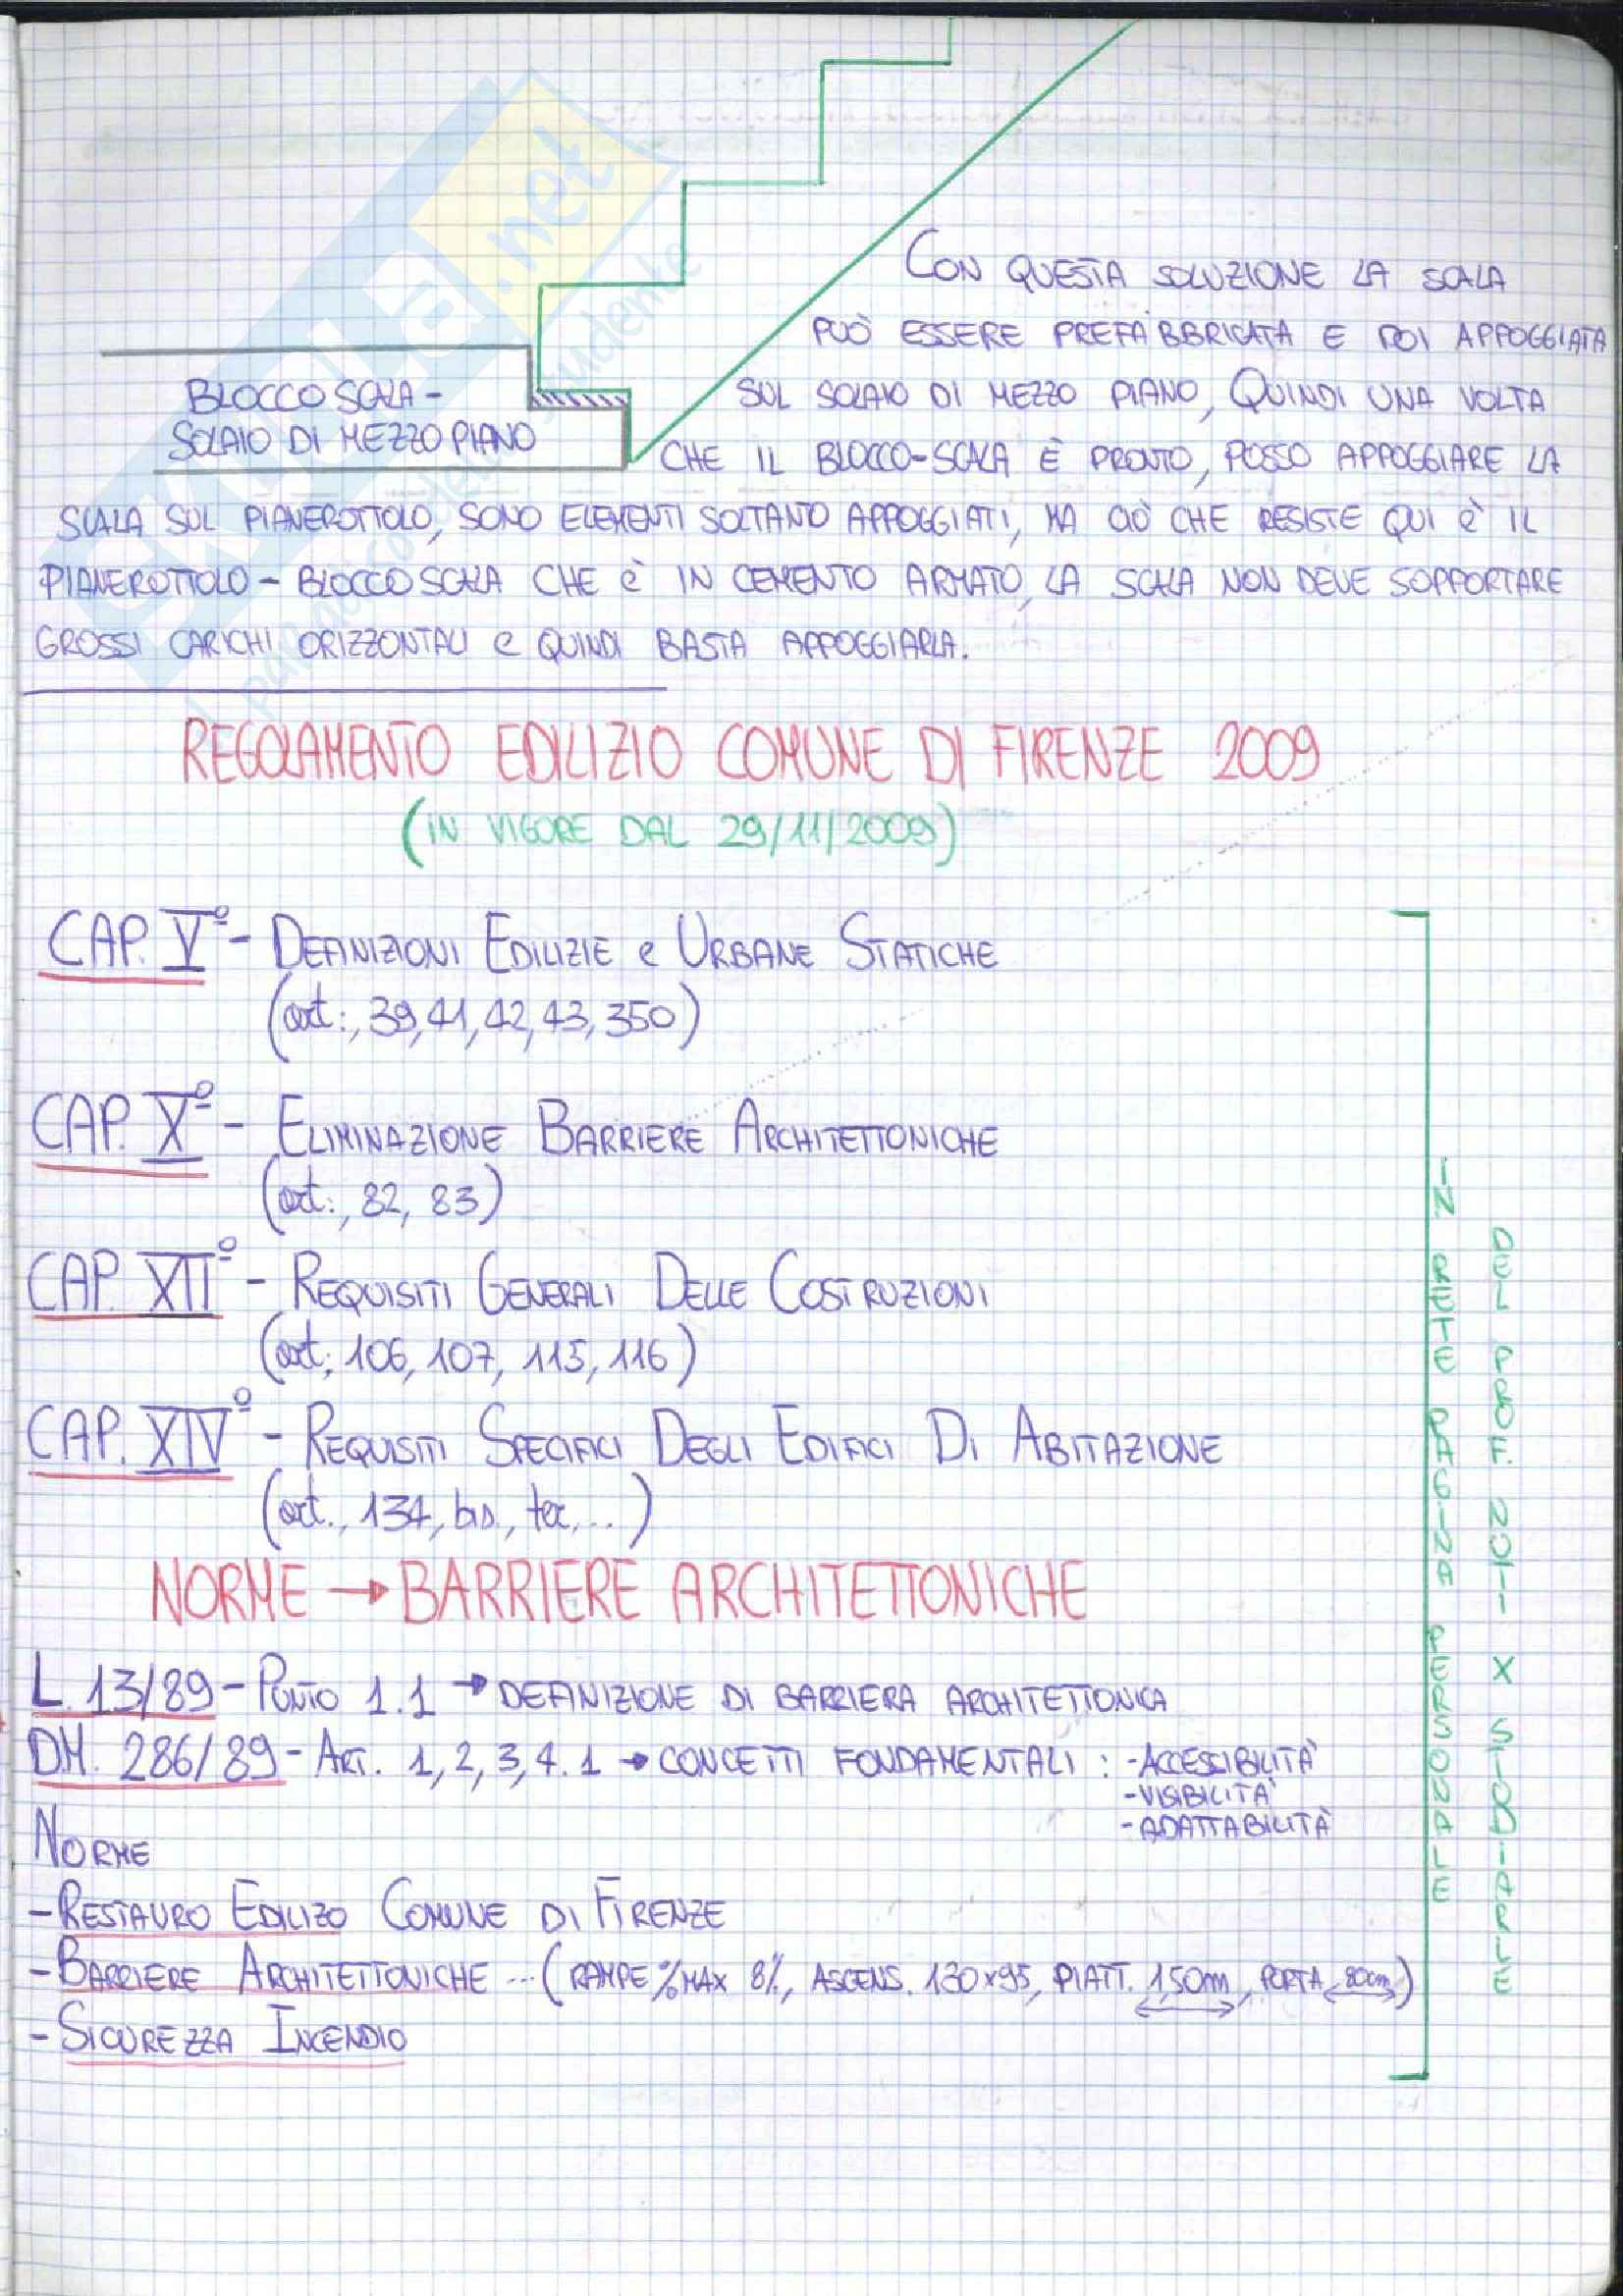 CON QUESTA SOLUZIONE LA SCALA
PUÒ ESSERE PREFABBRICATA E POI APPOGGIATA
BLOCCO SCALA -
SOLAIO DI MEZZO PIANO
SUL SOLAIO DI MEZZO PIANO, QUINDI UNA VOLTA
CHE IL BLOCCO-SCALA È PRONTO, POSSO APPOGGIARE LA
SCALA SUL PIANEROTTOLO, SONO ELEMENTI SOLTANTO APPOGGIATI, MA CIÒ CHE RESISTE QUI È IL
PIANEROTTOLO - BLOCCO SCALA CHE È IN CEMENTO ARMATO, LA SCALA NON DEVE SOPPORTARE
GROSSI CARICHI ORIZZONTALI E QUINDI BASTA APPOGGIARLA.
REGOLAMENTO EDILIZIO COMUNE DI FIRENZE 2009
(IN VIGORE DAL 29/11/2009)
CAP. V° - DEFINIZIONI EDILIZIE E URBANE STATICHE
(art:, 39, 41, 42, 43, 350)
CAP. X° - ELIMINAZIONE BARRIERE ARCHITETTONICHE
(art:, 82, 83)
CAP. XII° - REQUISITI GENERALI DELLE COSTRUZIONI
(art; 106, 107, 115, 116)
CAP. XIV° - REQUISITI SPECIFICI DEGLI EDIFICI DI ABITAZIONE
(art., 134, bis., ter,...)
NORME → BARRIERE ARCHITETTONICHE
L. 13/89 - PUNTO 1.1 → DEFINIZIONE DI BARRIERA ARCHITETTONICA
DM. 286/89 - ART. 1, 2, 3, 4.1 → CONCETTI FONDAMENTALI : - ACCESSIBILITÀ
- VISIBILITÀ
- ADATTABILITÀ
NORME
- RESTAURO EDILIZO COMUNE DI FIRENZE
- BARRIERE ARCHITETTONICHE ... (RAMPE % MAX 8%, ASCENS. 130x95, PIATT. 1,50m, PORTA 80cm)
- SICUREZZA INCENDIO
IN RETE PAGINA PERSONALE
DEL PROF. NUTI X STUDIARLE
skuola.net